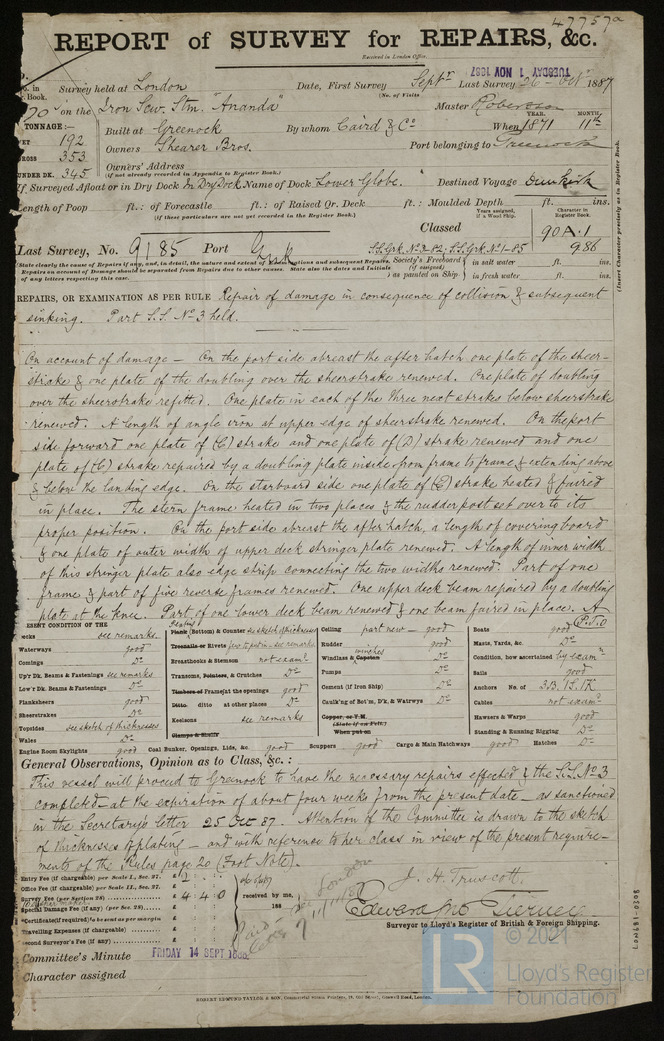 47757a
REPORT of SURVEY for REPAIRS, &c.
Received in London Office.
TUESDAY 1 NOV 1887
No. in Survey held at London Date, First Survey Sept Last Survey 26 Oct 1887
Book. (No. of Visits
70 on the Iron Scw. Stm. "Ananda" Master Robertson
TONNAGE:— YEAR. MONTH.
NET 192 Built at Greenock By whom Caird & Co When 1871 11th
GROSS 353 Owners Shearer Bros. Port belonging to Greenock
UNDER DK. 345 Owners' Address
(if not already recorded in Appendix to Register Book.)
If Surveyed Afloat or in Dry Dock In Dry Dock Name of Dock Lower Globe. Destined Voyage Dunkirk
Length of Poop ft.: of Forecastle ft.: of Raised Qr. Deck ft.: Moulded Depth ft. ins.
(if these particulars are not yet recorded in the Register Book.)
Years assigned, if a Wood Ship.
Character in Register Book.
Classed 90 A.1
Last Survey, No. 9185 Port Grk S.S. Grk. No. 2-82, S.S. Grk No. 1-85 9,86
Society's Freeboard (if assigned) as painted on Ship: in salt water ft. ins.
in fresh water ft. ins.
(Insert Character precisely as in Register Book.
REPAIRS, OR EXAMINATION AS PER RULE Repair of damage in consequence of collision & subsequent
sinking. Part S.S. No. 3 held.
On account of damage — On the port side abreast the after hatch one plate of the sheer-
strake & one plate of the doubling over the sheerstrake renewed. One plate of doubling
over the sheerstrake refitted. One plate in each of the three next strakes below sheerstrake
renewed. A length of angle iron at upper edge of sheerstrake renewed. On the port
side forward one plate of (C) strake and one plate of (D) strake renewed and one
plate of strake repaired by a doubling plate inside from frame to frame & extending above
& below the landing edge. On the starboard side one plate of strake heated & faired
in place. The stern frame heated in two places & the rudder post set over to its
proper position. On the port side abreast the after hatch, a length of covering board
& one plate of outer width of upper deck stringer plate renewed. A length of inner width
of this stringer plate also edge strip connecting the two widths renewed. Part of one
frame & part of five reverse frames renewed. One upper deck beam repaired by a doubling
plate at the knee. Part of one lower deck beam renewed & one beam faired in place. A
(P.T.O
PRESENT CONDITION OF THE
Decks see remarks
Waterways good
Comings Do
Up'r Dk. Beams & Fastenings see remarks
Low'r Dk. Beams & Fastenings Do
Planksheers good
Sheerstrakes Do
Topsides see sketch of thicknesses
Wales Do
Engine Room Skylights good
Plank (Bottom) & Counter see sketch thicknesses
Treenails or Rivets
Breasthooks & Stemson not exam
Transoms, Pointers, & Crutches Do
Timbers or Frames at the openings good
Ditto ditto at other places Do
Keelsons see remarks
Clamps & Shelfs
Coal Bunker, Openings, Lids, &c. good
Ceiling part new — good
Rudder good
Windlass & Capstan winches Do
Pumps Do
Cement (if Iron Ship) Do
Caulk'ng of Bot'm, D'k, & Watrwys Do
Copper, or Y.M.
(State if on Felt.)
When put on
Scuppers good Cargo & Main Hatchways good Hatches Do
Boats good
Masts, Yards, &c. Do
Condition, how ascertained by exam
Sails good
Anchors No. of 3B. 1S. 1K
Cables not exam
Hawsers & Warps good
Standing & Running Rigging Do
General Observations, Opinion as to Class, &c. :
This vessel will proceed to Greenock to have the necessary repairs effected & the S.S. No 3
completed — at the expiration of about four weeks from the present date — as sanctioned
in the Secretary's letter 25 Oct 87. Attention of the Committee is drawn to the sketch
of thicknesses of plating — and with reference to her class in view of the present require-
ments of the Rules page 20 (Foot Note).
Entry Fee (if chargeable) per Scale I., Sec. 27. £
Office Fee (if chargeable) per Scale II., Sec. 27. £
Survey Fee (per Section 28) £ 4 4 0 received by me,
Special Damage Fee (if any) (per Sec. 28). £ 188
Certificate (if required) to be sent as per margin £
Travelling Expenses (if chargeable) £
Second Surveyor's Fee (if any) £
J. H. Truscott.
Surveyor to Lloyd's Register of British & Foreign Shipping.
Committee's Minute FRIDAY 14 SEPT
Character assigned
ROBERT EDMUND TAYLOR & SON, Commercial Steam Printers, 19, Old Street, Goswell Road, London.
© 2021
LR
Lloyd's Register
Foundation